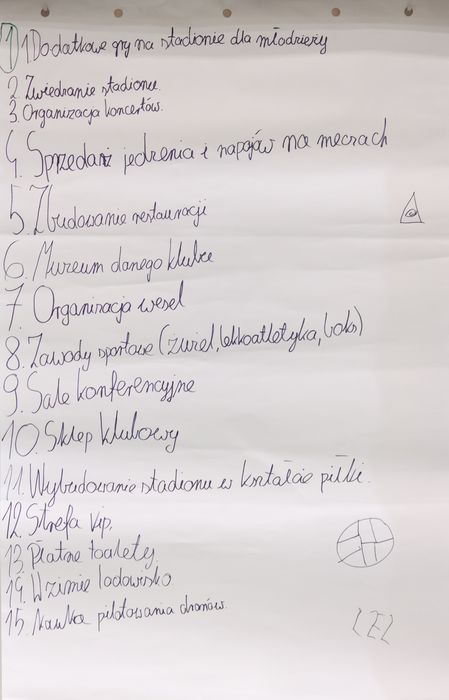 1) 1 Dodatkowe gry na stadionie dla młodziery
2. Zwiedzanie stadionu.
3. Organizacja koncertów.
4. Sprzedarz jedzenia i napojów na meczach
5. Zbudowanie restauracji
6. Muzeum danego klubu
7. Organizacja wesel
8. Zawody sportowe (żużel, lekkoatletyka, boks)
9. Sale konferencyjne
10. Sklep klubowy
11. Wybudowanie stadionu w kształcie piłki.
12. Strefa vip.
13. Płatne toalety
14. W zimie lodowisko
15. Nauka pilotowania dronów.
LEL